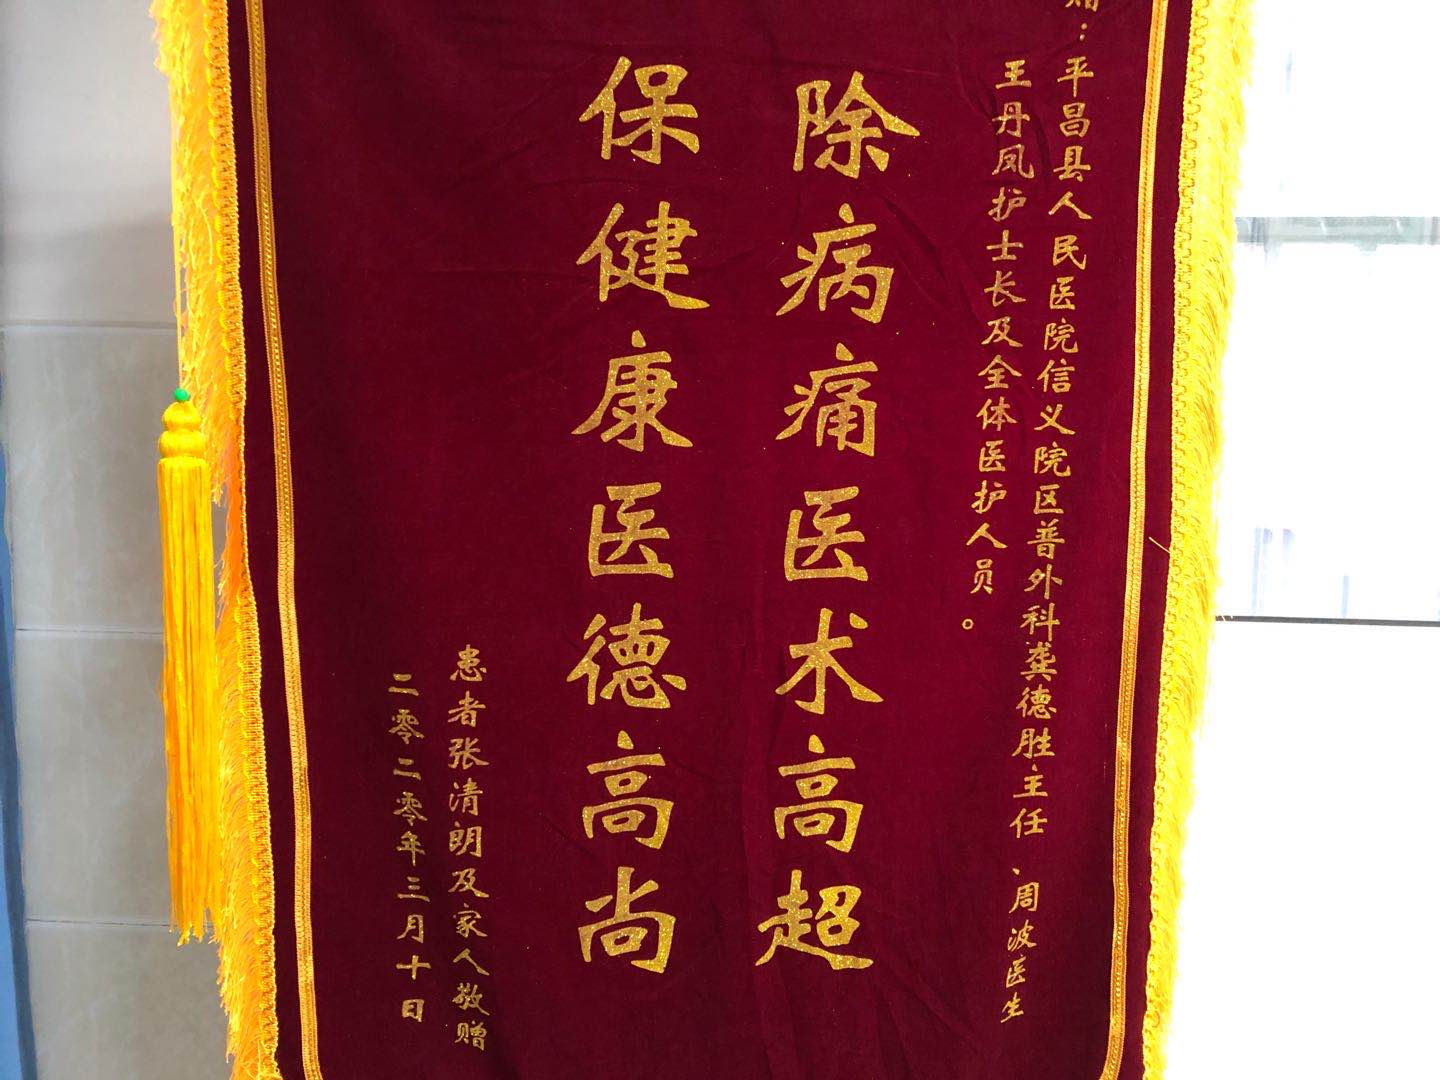 赠：平昌县人民医院信义院区普外科龚德胜主任、周波医生
王丹凤护士长及全体医护人员。
除病痛医术高超
保健康医德高尚
患者张清朗及家人敬赠
二零二零年三月十日